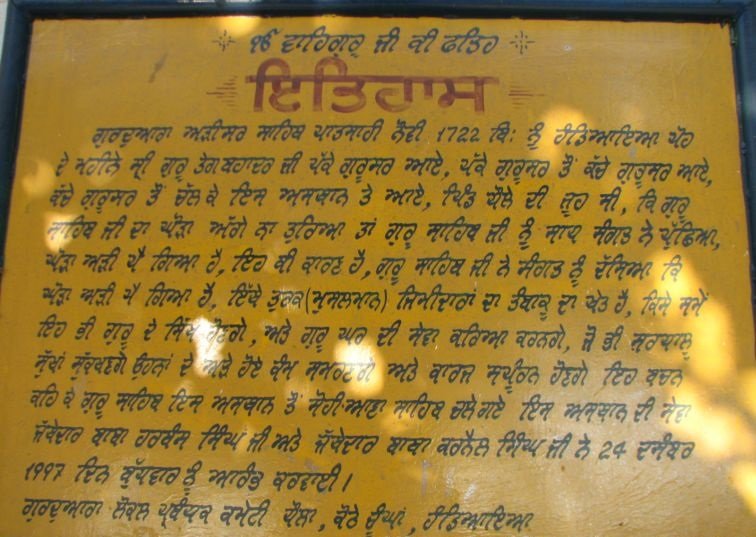 ੴ ਵਾਹਿਗੁਰੂ ਜੀ ਕੀ ਫਤਿਹ
ਇਤਿਹਾਸ
ਗੁਰਦੁਆਰਾ ਅੜੀਸਰ ਸਾਹਿਬ ਪਾਤਸਾਹੀ ਨੌਵੀਂ 1722 ਬਿ: ਨੂੰ ਹੰਡਿਆਇਆ ਪੋਹ
ਦੇ ਮਹੀਨੇ ਸ੍ਰੀ ਗੁਰੂ ਤੇਗ ਬਹਾਦਰ ਜੀ ਪੱਕੇ ਗੁਰੂਸਰ ਆਏ, ਪੱਕੇ ਗੁਰੂਸਰ ਤੋਂ ਕੱਚੇ ਗੁਰੂਸਰ ਆਏ,
ਕੱਚੇ ਗੁਰੂਸਰ ਤੋਂ ਚੱਲ ਕੇ ਇਸ ਅਸਥਾਨ ਤੇ ਆਏ, ਪਿੰਡ ਧੌਲੇ ਦੀ ਜੂਹ ਸੀ, ਕਿ ਗੁਰੂ
ਸਾਹਿਬ ਜੀ ਦਾ ਘੋੜਾ ਅੱਗੇ ਨਾ ਤੁਰਿਆ ਤਾਂ ਗੁਰੂ ਸਾਹਿਬ ਜੀ ਨੂੰ ਸਾਧ ਸੰਗਤ ਨੇ ਪੁੱਛਿਆ,
ਘੋੜਾ ਅੜੀ ਪੈ ਗਿਆ ਹੈ, ਇਹ ਕੀ ਕਾਰਣ ਹੈ, ਗੁਰੂ ਸਾਹਿਬ ਜੀ ਨੇ ਸੰਗਤ ਨੂੰ ਦੱਸਿਆ ਕਿ
ਘੋੜਾ ਅੜੀ ਪੈ ਗਿਆ ਹੈ, ਇੱਥੇ ਤੁਰਕ (ਮੁਸਲਮਾਨ) ਜਿਮੀਦਾਰਾਂ ਦਾ ਤੰਬਾਕੂ ਦਾ ਖੇਤ ਹੈ, ਕਿਸੇ ਸਮੇਂ
ਇਹ ਭੀ ਗੁਰੂ ਦੇ ਸਿੱਖ ਹੋਣਗੇ, ਅਤੇ ਗੁਰੂ ਘਰ ਦੀ ਸੇਵਾ ਕਰਿਆ ਕਰਨਗੇ, ਜੋ ਭੀ ਸ਼ਰਧਾਲੂ
ਸੁੱਖਾਂ ਸੁੱਖਣਗੇ ਉਹਨਾਂ ਦੇ ਅੜੇ ਹੋਏ ਕੰਮ ਸਮਰਣਗੇ ਅਤੇ ਕਾਰਜ ਸਪੂੰਰਨ ਹੋਣਗੇ ਇਹ ਬਚਨ
ਕਹਿ ਕੇ ਗੁਰੂ ਸਾਹਿਬ ਇਸ ਅਸਥਾਨ ਤੋਂ ਸੋਹੀਆਣਾ ਸਾਹਿਬ ਚਲੇ ਗਏ ਇਸ ਅਸਥਾਨ ਦੀ ਸੇਵਾ
ਜੱਥੇਦਾਰ ਬਾਬਾ ਹਰਬੰਸ ਸਿੰਘ ਜੀ ਅਤੇ ਜੱਥੇਦਾਰ ਬਾਬਾ ਕਰਨੈਲ ਸਿੰਘ ਜੀ ਨੇ 24 ਦਸੰਬਰ
1997 ਦਿਨ ਬੁੱਧਵਾਰ ਨੂੰ ਆਰੰਭ ਕਰਵਾਈ।
ਗੁਰਦੁਆਰਾ ਲੋਕਲ ਪ੍ਰਬੰਧਕ ਕਮੇਟੀ ਧੌਲਾ, ਕੋਠੇ ਚੂੰਘਾਂ, ਹੰਡਿਆਇਆ